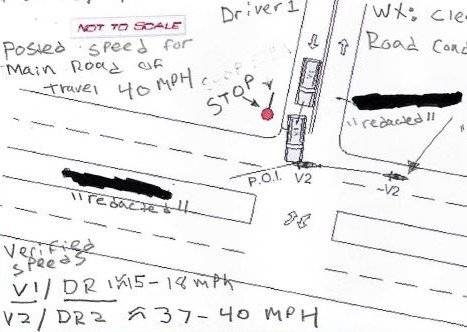 NOT TO SCALE
Driver 1
WX: Cle
Posted speed for
Main Road of
travel 40 MPH
Road Cond
STOP
"redacted"
P.O.I.
V2
~V2
"redacted"
Verified
speeds
V1/ DR1≈15-18 mph
V2/ DR2 ≈ 37-40 MPH